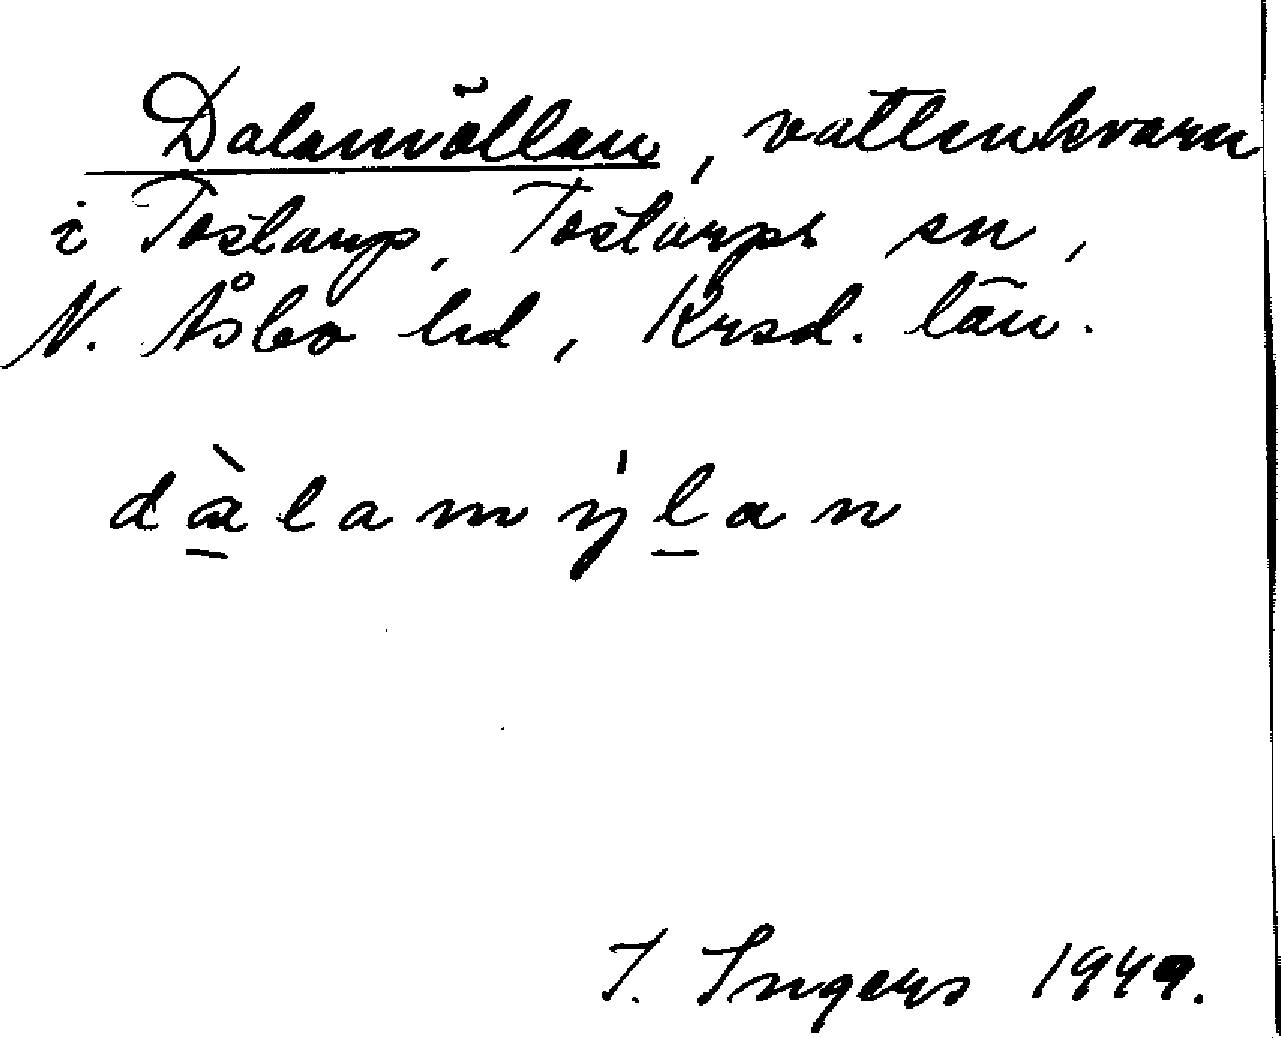 Dalamöllan, vattenkvarn
i Tostarp, Tostarps sn,
N. Åsbo hd, Krsd. län.
dàlamýlan
I. Ingers 1949.